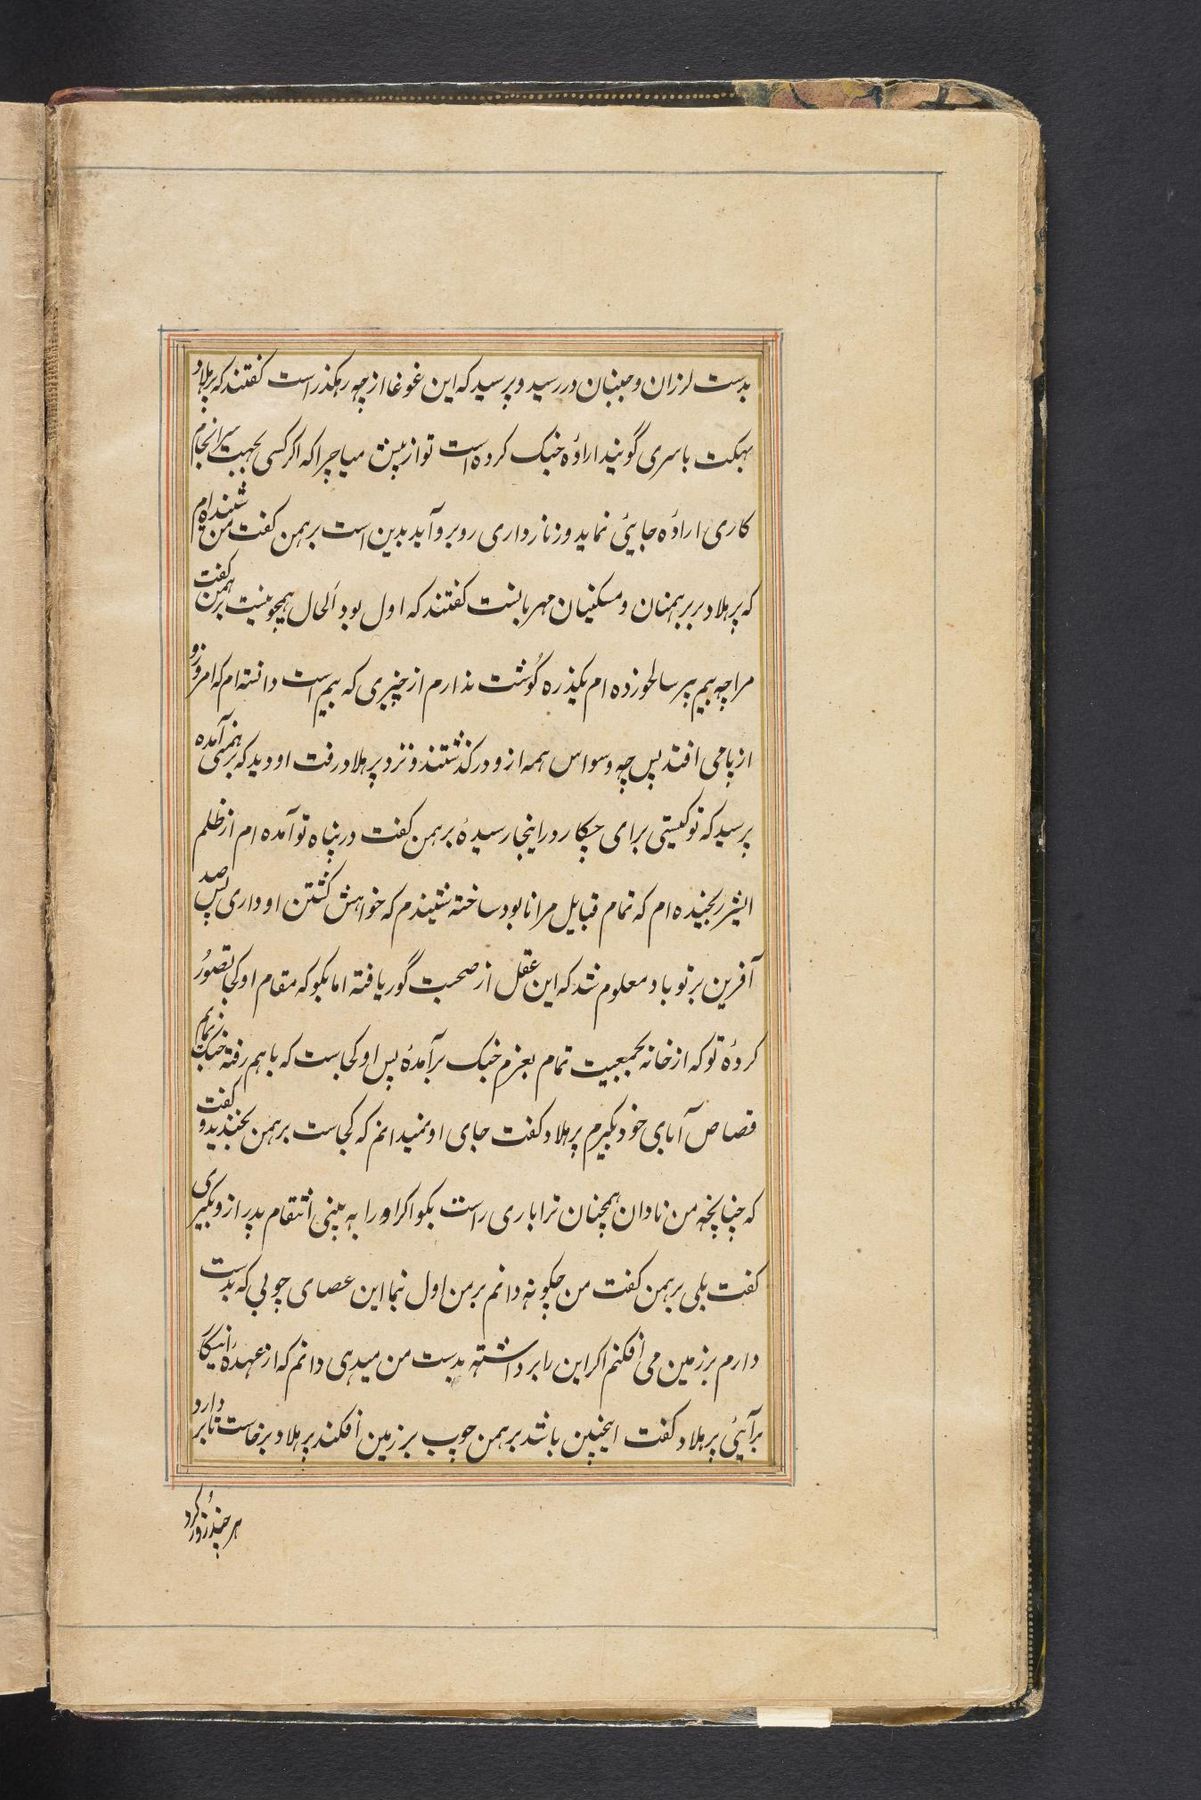 بدست لرزان و جنبان در رسید و پرسید که این غوغا از چه رهکذر است کفتند که پرهلاد
بهکت باسری گویند اراده جنک کرده است تو از پیش میا چرا که اکر کسی بجهت سرانجام
کاری اراده جایی نماید و زناز داری روبرو آید بدین است برهمن کفت من شنیده‌ام
که پرهلاد بر برهمنان و مسکینان مهربانست کفتند که اول بود الحال همچو نیست برهمن کفت
مرا چه بیم پیر سالخورده ام یکذره گوشت ندارم از چیزی که بیم است دانسته ام که امروز و
از پا می افتد پس چه وسواس همه از و درکذشتند و نزد پرهلاد رفت او دید که برهمنی آمده
پرسید که تو کیستی برای چکار در اینجا رسیدهٔ برهمن کفت در پناه تو آمده ام از ظلم
ایشر رنجیده ام که تمام قبایل مرا نابود ساخته شنیدم که خواهش کشتن او داری پس صد
آفرین بر تو باد معلوم شد که این عقل از صحبت گور یافته اما بکو که مقام او کجا تصور
کردهٔ تو که از خانه بجمعیت تمام بعزم جنک برآمدهٔ پس او کجاست که باهم رفته جنک نمایم
قصاص آبای خود بکیرم پرهلاد کفت جای او نمیدانم که کجاست برهمن بخندید و کفت
که چنانچه من نادان همچنان ترا باری راست بکو اکر او را به بینی انتقام پدر از و بکیری
کفت بلی برهمن کفت من چکونه دانم بر من اول نما این عصای چوبی که بدست
دارم بر زمین می افکنم اکر این را برداشته بدست من میدهی دانم که از عهدهٔ اینکار
برآیئی پرهلاد کفت اینچنین باشد برهمن چوب بر زمین افکند پرهلاد برخاست تا بردارد
هر چند زور کرد